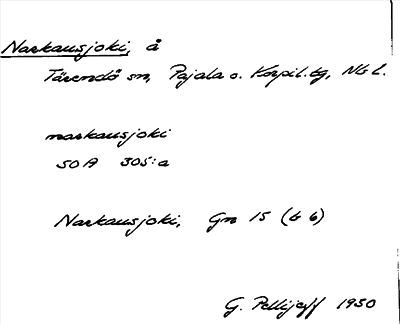 Narkausjoki, å
Tärendö sn, Pajala o. Korpil. tg, Nb l.
narkausjoki
SOA 305:a
Narkausjoki, Gn 15 (b 6)
G. Pellijeff 1950